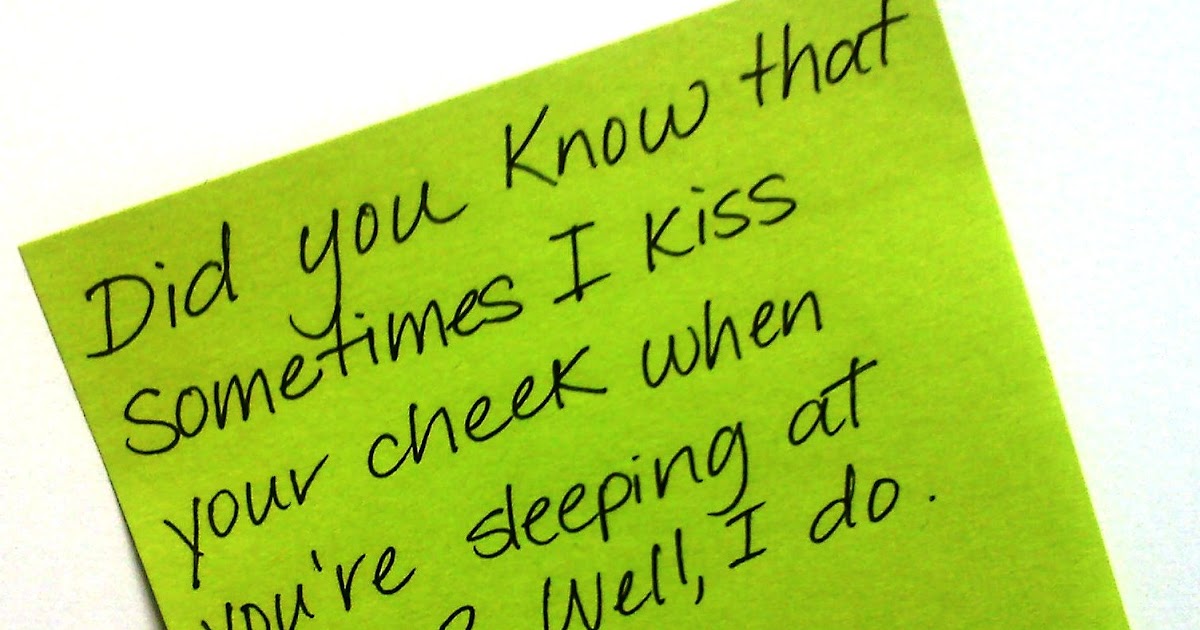 Did you know that
sometimes I kiss
your cheek when
you're sleeping at
? Well, I do.